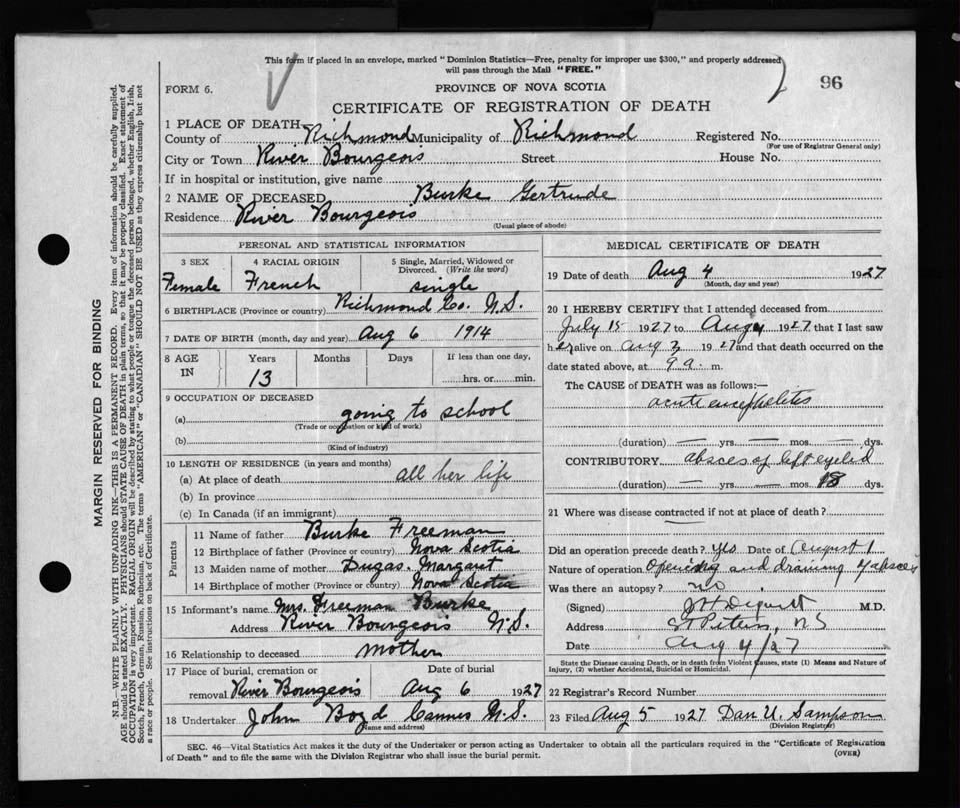 This form if placed in an envelope, marked "Dominion Statistics—Free, penalty for improper use $300," and properly addressed
will pass through the Mail "FREE."
96
FORM 6.
PROVINCE OF NOVA SCOTIA
CERTIFICATE OF REGISTRATION OF DEATH
1 PLACE OF DEATH,
County of Richmond Municipality of Richmond Registered No.
(For use of Registrar General only)
City or Town River Bourgeois Street House No.
If in hospital or institution, give name
2 NAME OF DECEASED Burke Gertrude
Residence River Bourgeois
(Usual place of abode)
PERSONAL AND STATISTICAL INFORMATION
3 SEX 4 RACIAL ORIGIN 5 Single, Married, Widowed or
Divorced. (Write the word)
Female French single
6 BIRTHPLACE (Province or country) Richmond Co. N.S.
7 DATE OF BIRTH (month, day and year) Aug 6 1914
8 AGE Years Months Days If less than one day,
IN 13 hrs. or min.
9 OCCUPATION OF DECEASED
(a) going to school
(Trade or occupation or kind of work)
(b)
(Kind of industry)
10 LENGTH OF RESIDENCE (in years and months)
(a) At place of death all her life
(b) In province
(c) In Canada (if an immigrant)
Parents
11 Name of father Burke Freeman
12 Birthplace of father (Province or country) Nova Scotia
13 Maiden name of mother Dugas. Margaret
14 Birthplace of mother (Province or country) Nova Scotia
15 Informant's name Mrs. Freeman Burke
Address River Bourgeois N.S.
16 Relationship to deceased mother
17 Place of burial, cremation or Date of burial
removal River Bourgeois Aug 6 1927
18 Undertaker John Boyd Cannes N.S.
(Name and address)
MEDICAL CERTIFICATE OF DEATH
19 Date of death Aug 4 1927
(Month, day and year)
20 I HEREBY CERTIFY that I attended deceased from
July 18 1927 to Aug 4 1927 that I last saw
her alive on Aug 3 1927 and that death occurred on the
date stated above, at 9 a. m.
The CAUSE of DEATH was as follows:—
acute encephelites
(duration) — yrs. — mos. — dys.
CONTRIBUTORY absces of left eyelid
(duration) — yrs. — mos. 18 dys.
21 Where was disease contracted if not at place of death?
Did an operation precede death? yes Date of August 1
Nature of operation Opening and draining of absces
Was there an autopsy? no.
(Signed) M.D.
Address St Peters, NS
Date Aug 4/27
State the Disease causing Death, or in death from Violent Causes, state (1) Means and Nature of
Injury, (2) whether Accidental, Suicidal or Homicidal.
22 Registrar's Record Number
23 Filed Aug 5 1927 Dan U. Sampson
(Division Registrar)
SEC. 46—Vital Statistics Act makes it the duty of the Undertaker or person acting as Undertaker to obtain all the particulars required in the "Certificate of Registration
of Death" and to file the same with the Division Registrar who shall issue the burial permit.
(OVER)
MARGIN RESERVED FOR BINDING
N.B.—WRITE PLAINLY WITH UNFADING INK—THIS IS A PERMANENT RECORD. Every item of information should be carefully supplied.
AGE should be stated EXACTLY. PHYSICIANS should STATE CAUSE OF DEATH in plain terms, so that it may be properly classified. Exact statement of
OCCUPATION is very important. RACIAL ORIGIN will be described by stating to what people or tongue the deceased person belonged, whether English, Irish,
Scotch, French, German, Russian, Ruthenian, etc. The terms "AMERICAN" or "CANADIAN" SHOULD NOT BE USED as they express citizenship but not
a race or people. See instructions on back of Certificate.